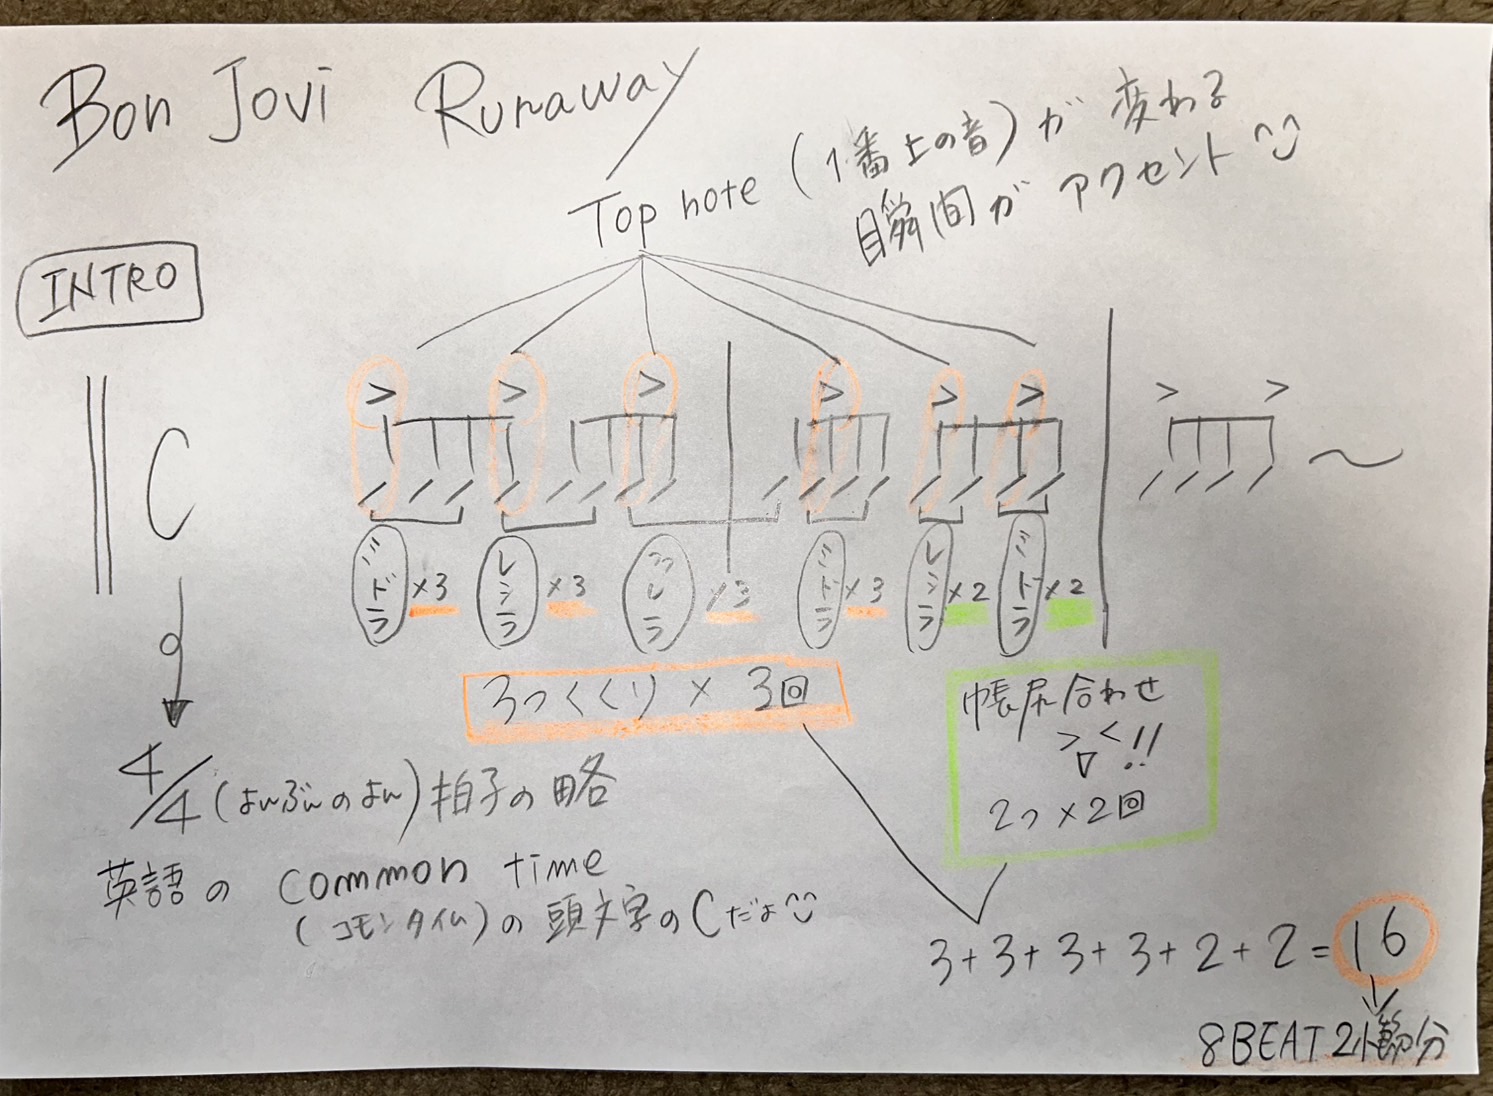 Bon Jovi Runaway
Top note (1番上の音)が変わる
瞬間がアクセント
INTRO
C
> > > > > > > >
ミドラ ×3 レシラ ×3 ファレラ ×3 ミドラ ×3 レシラ ×2 ミドラ ×2
3つくくり × 3回
帳尻合わせ
!!
2つ×2回
4/4(よんぶんのよん)拍子の略
英語の common time
(コモンタイム)の頭文字のCだよ
3+3+3+3+2+2=16
8BEAT 2小節分